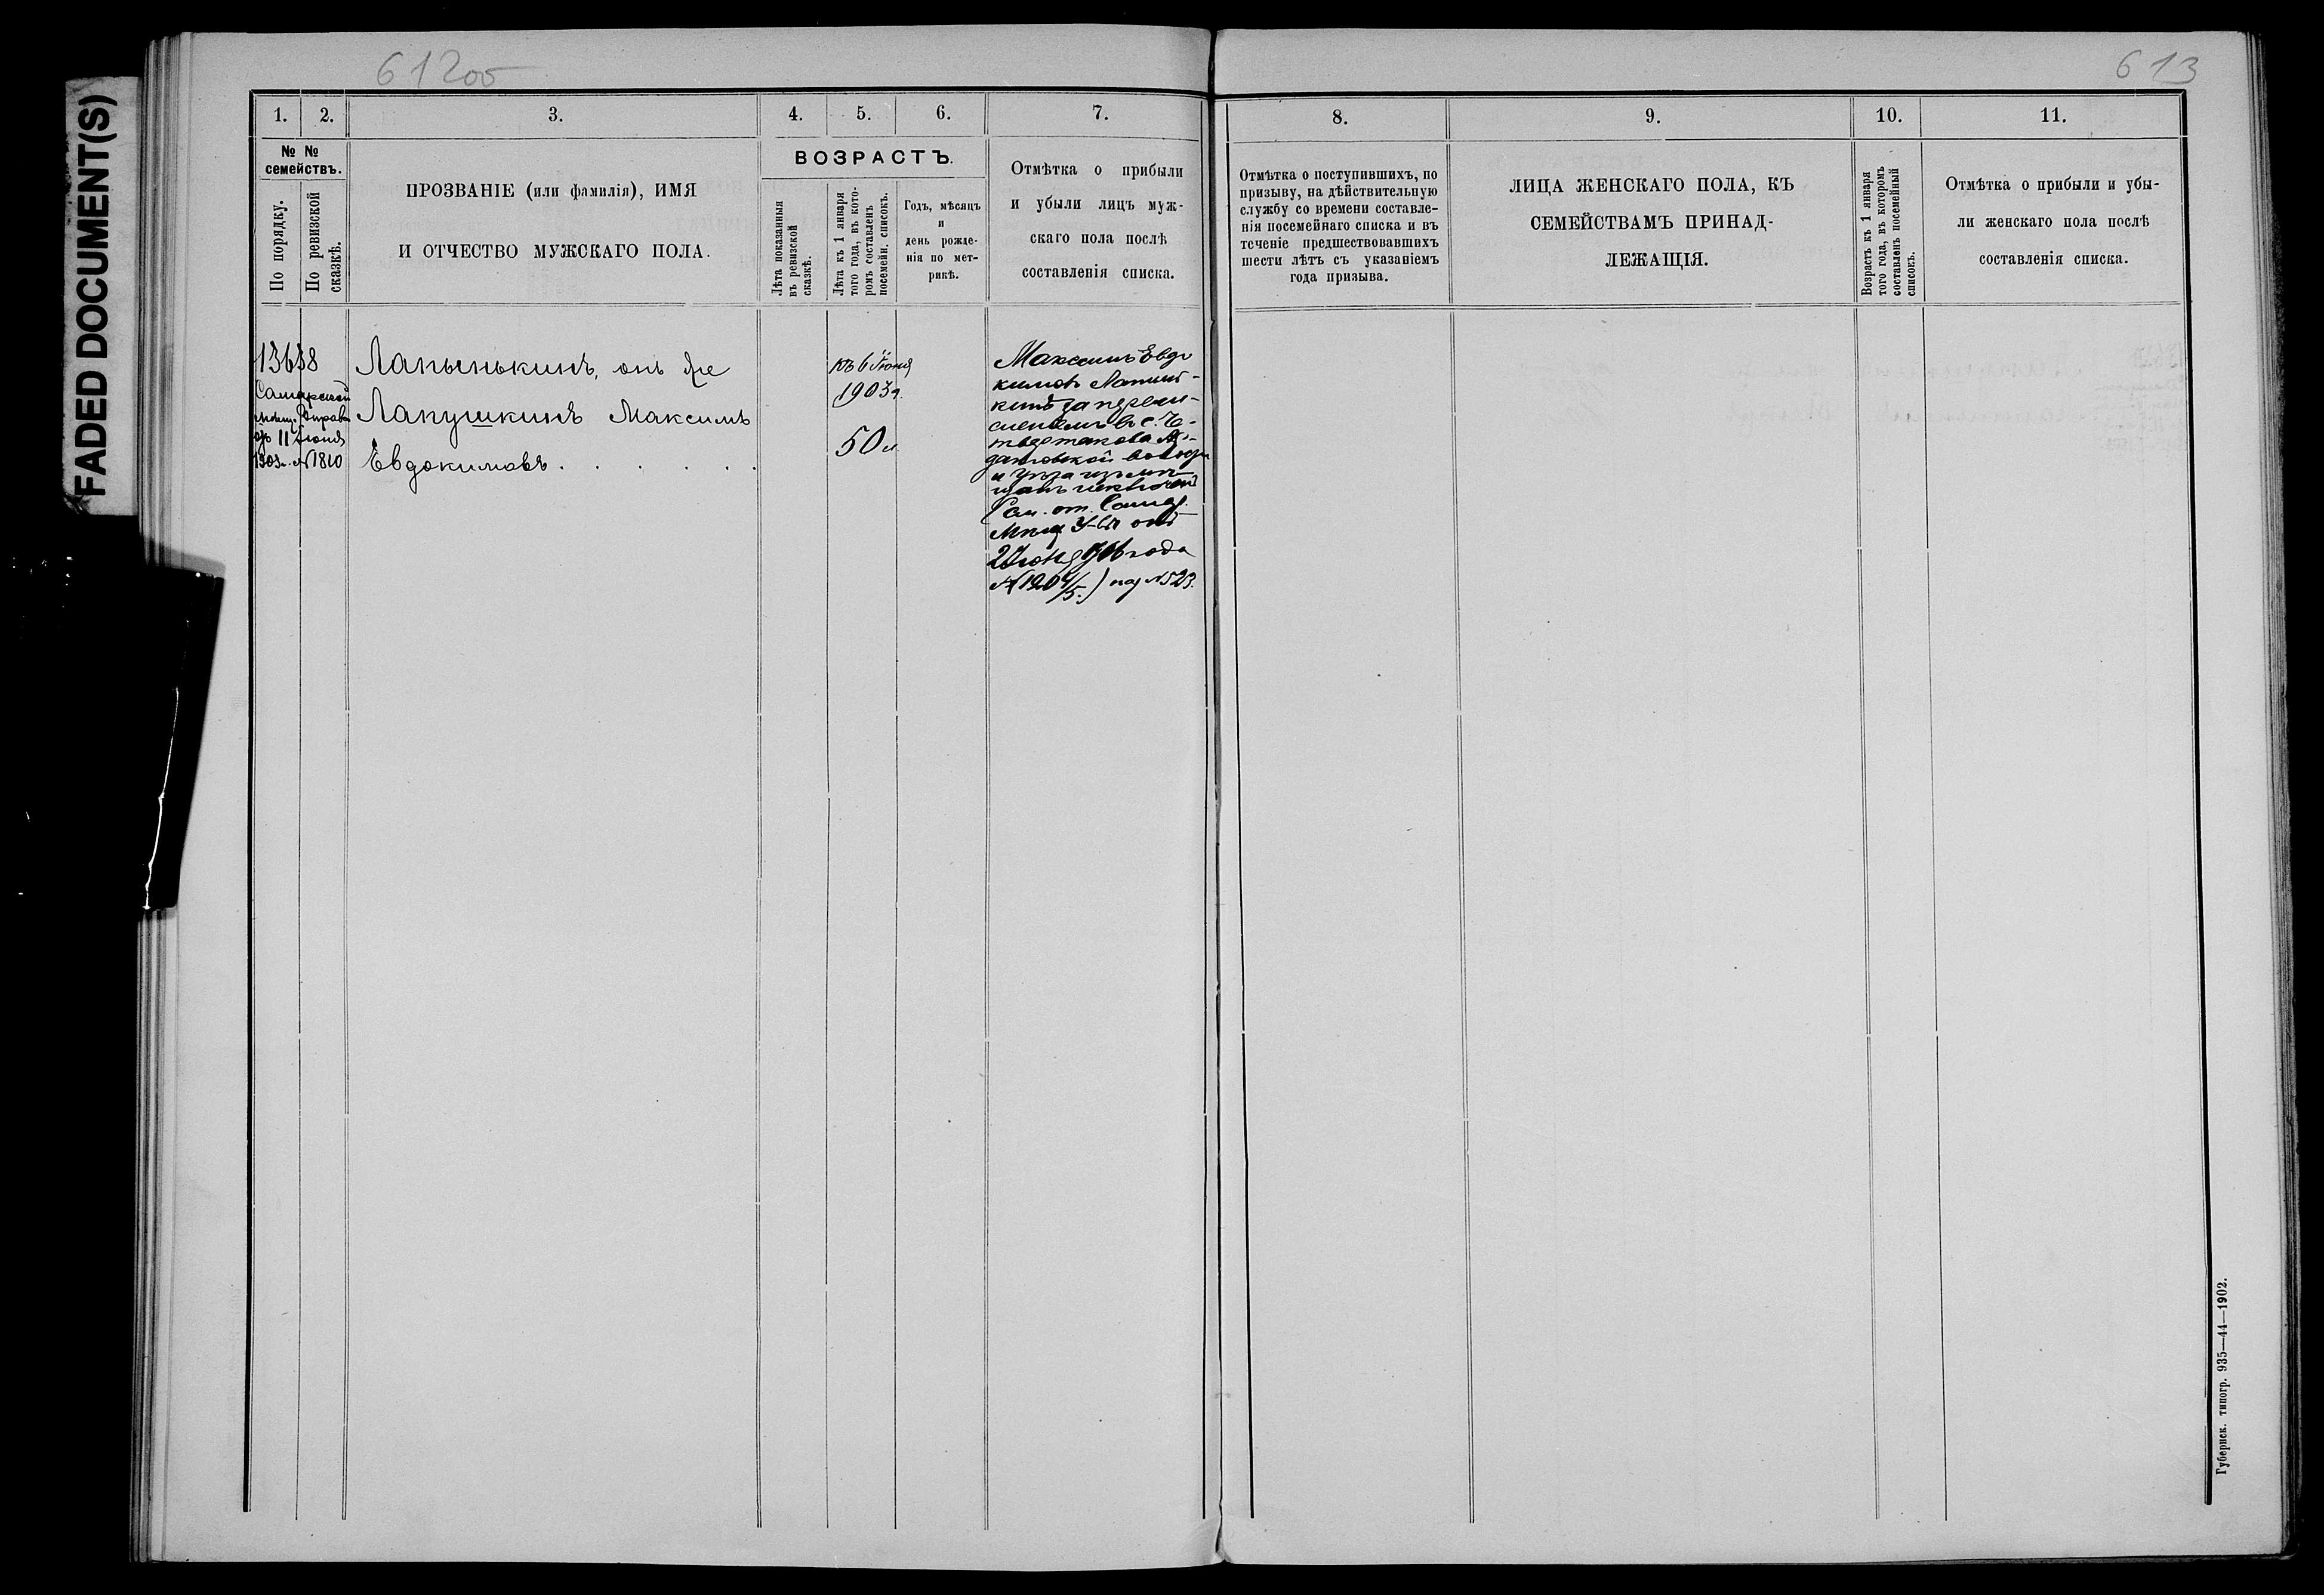 FADED DOCUMENT(S)
612об
613
1. 2. 3. 4. 5. 6. 7.
№ №
семействъ.
По порядку.
По ревизской
сказкѣ.
ПРОЗВАНІЕ (или фамилія), ИМЯ
И ОТЧЕСТВО МУЖСКАГО ПОЛА.
ВОЗРАСТЪ.
Лѣта показанныя
въ ревизской
сказкѣ.
Лѣта къ 1 января
того года, въ кото-
ромъ составленъ
посемейн. списокъ.
Годъ, мѣсяцъ
и
день рожде-
нія по мет-
рикѣ.
Отмѣтка о прибыли
и убыли лицъ муж-
скаго пола послѣ
составленія списка.
8. 9. 10. 11.
Отмѣтка о поступившихъ, по
призыву, на дѣйствительную
службу со времени составле-
нія посемейнаго списка и въ
теченіе предшествовавшихъ
шести лѣтъ съ указаніемъ
года призыва.
ЛИЦА ЖЕНСКАГО ПОЛА, КЪ
СЕМЕЙСТВАМЪ ПРИНАД-
ЛЕЖАЩІЯ.
Возрастъ къ 1 января
того года, въ которомъ
составленъ посемейный
списокъ.
Отмѣтка о прибыли и убы-
ли женскаго пола послѣ
составленія списка.
13638
Самарской
Управы
11 Іюня
1903г. № 1810
Лапынькинъ, онъ же
Лапушкинъ Максимъ
Евдокимовъ . . . . . .
къ 6 Іюня
1903г.
50 л
Максимъ Евдо
кимовъ
кинъ за перечи-
сленіемъ въ с.
волос
и
исключенъ
Самар.
Мѣщ. отъ
года
№ 1204/5.) № 523.
Губернск. типогр. 935—44—1902.